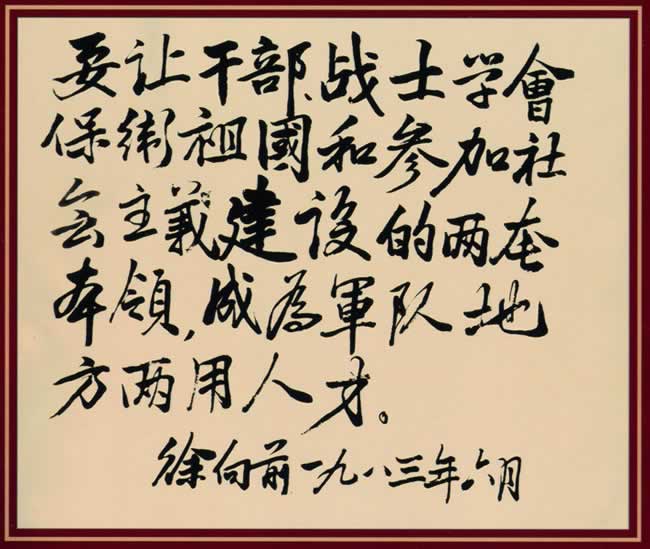 要让干部、战士学會
保衛祖國和参加社
会主義建设的两套
本領,成為軍队地
方两用人才。
徐向前一九八三年六月